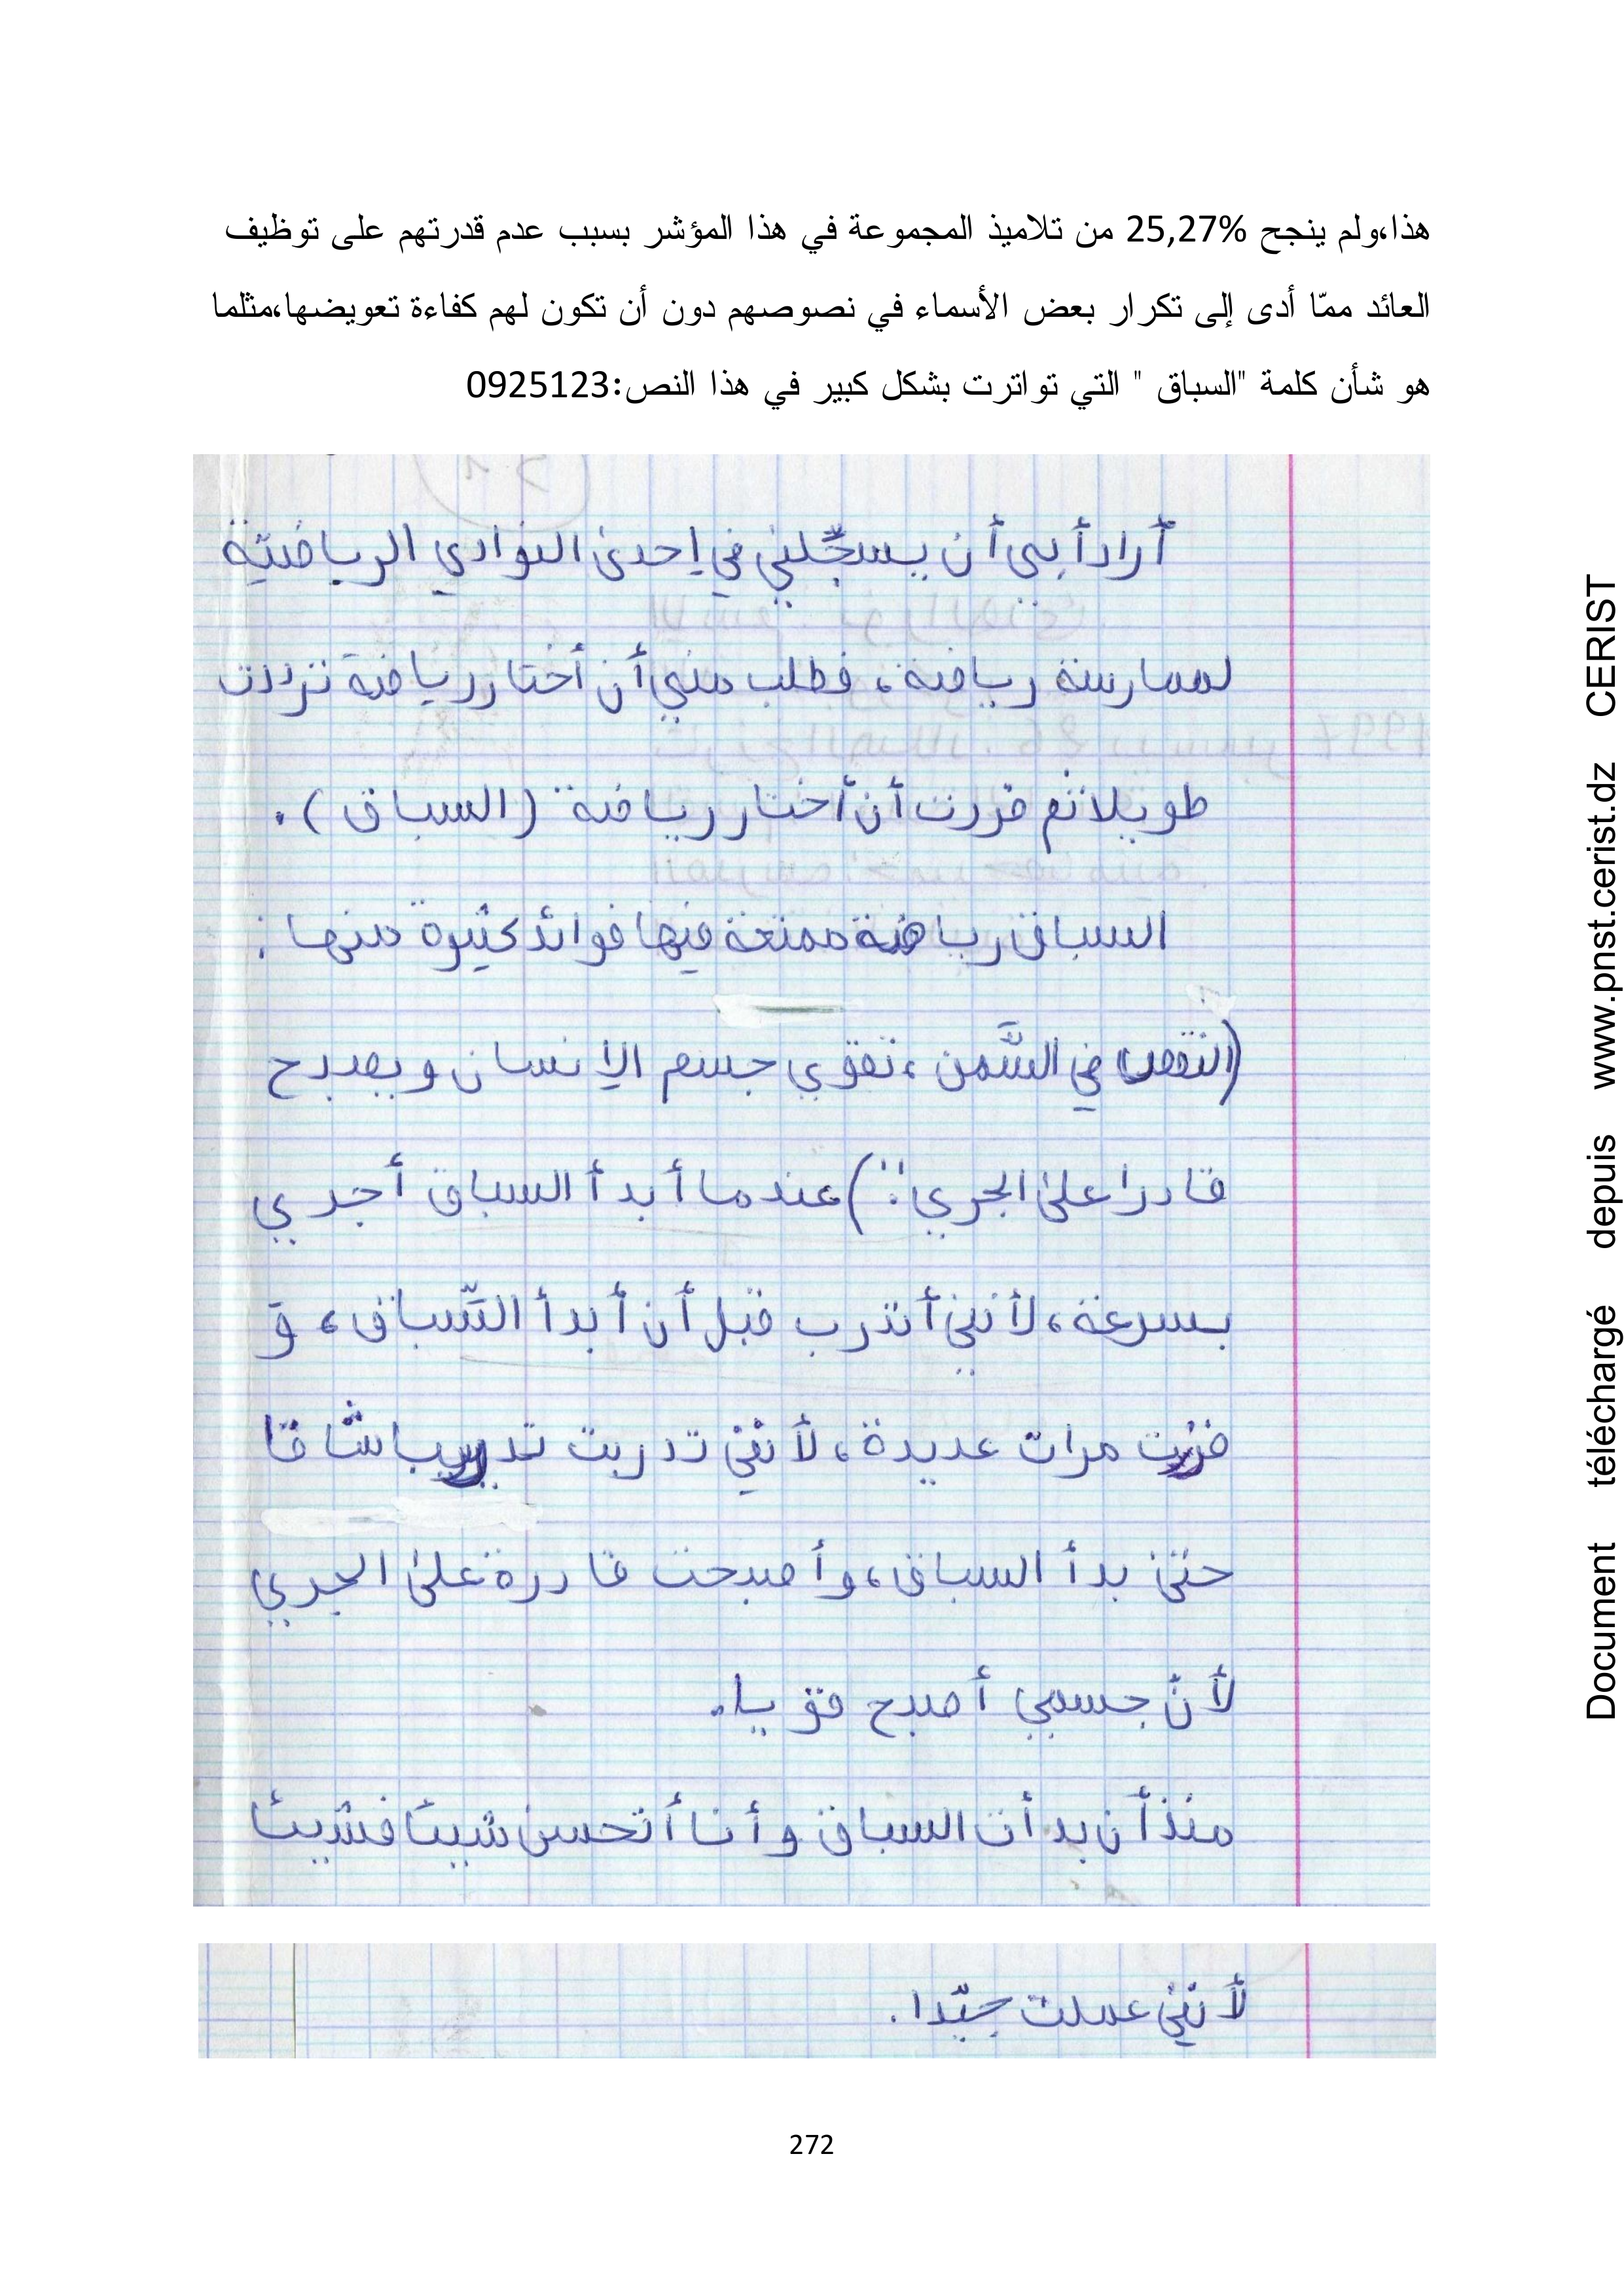 هذا،ولم ينجح 25,27% من تلاميذ المجموعة في هذا المؤشر بسبب عدم قدرتهم على توظيف
العائد ممّا أدى إلى تكرار بعض الأسماء في نصوصهم دون أن تكون لهم كفاءة تعويضها،مثلما
هو شأن كلمة "السباق " التي تواترت بشكل كبير في هذا النص:0925123
أراد أبي أن يسجّلني في إحدى النوادي الرياضية
لممارسة رياضة، فطلب مني أن أختار رياضة ترددت
طويلا ثم قررت أن أختار رياضة (السباق).
السباق رياضة ممتعة فيها فوائد كثيرة منها:
(النقص في السَّمن، تقوي جسم الإنسان ويصبح
قادرا على الجري..) عندما أبدأ السباق أجري
بسرعة، لأنني أتدرب قبل أن أبدأ السّباق، وَ
فزت مرات عديدة، لأنني تدربت تدريبا شاقا
حتى بدأ السباق، وأصبحت قادرة على الجري
لأنّ جسمي أصبح قويا.
منذ أن بدأت السباق وأنا أتحسن شيئا فشيئا
لأنني عملت جيّدا.
272
Document téléchargé depuis www.pnst.cerist.dz CERIST